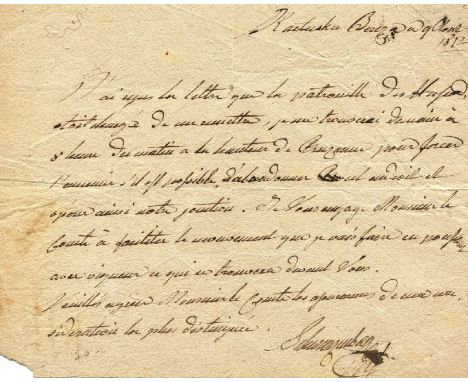 Kartuska Bereza ce 9 Aout
1812
J'ai reçu la lettre que la patrouille des Husards
etoit chargé de me remettre, je me trouverai demain à
8 heure du matin a la hauteur de Pruzanne pour forcer
l'ennemi s'il est possible, d'abandonner cet endroit et
à
notre position. Je Vous engage Monsieur le
Comte à faciliter le mouvement que je vais faire en poussant
avec vigueur ce qui se trouvera devant Vous.
Veuillez agréer Monsieur le Comte les assurances de ma con-
sideration la plus distinguée.
Schwarzenberg